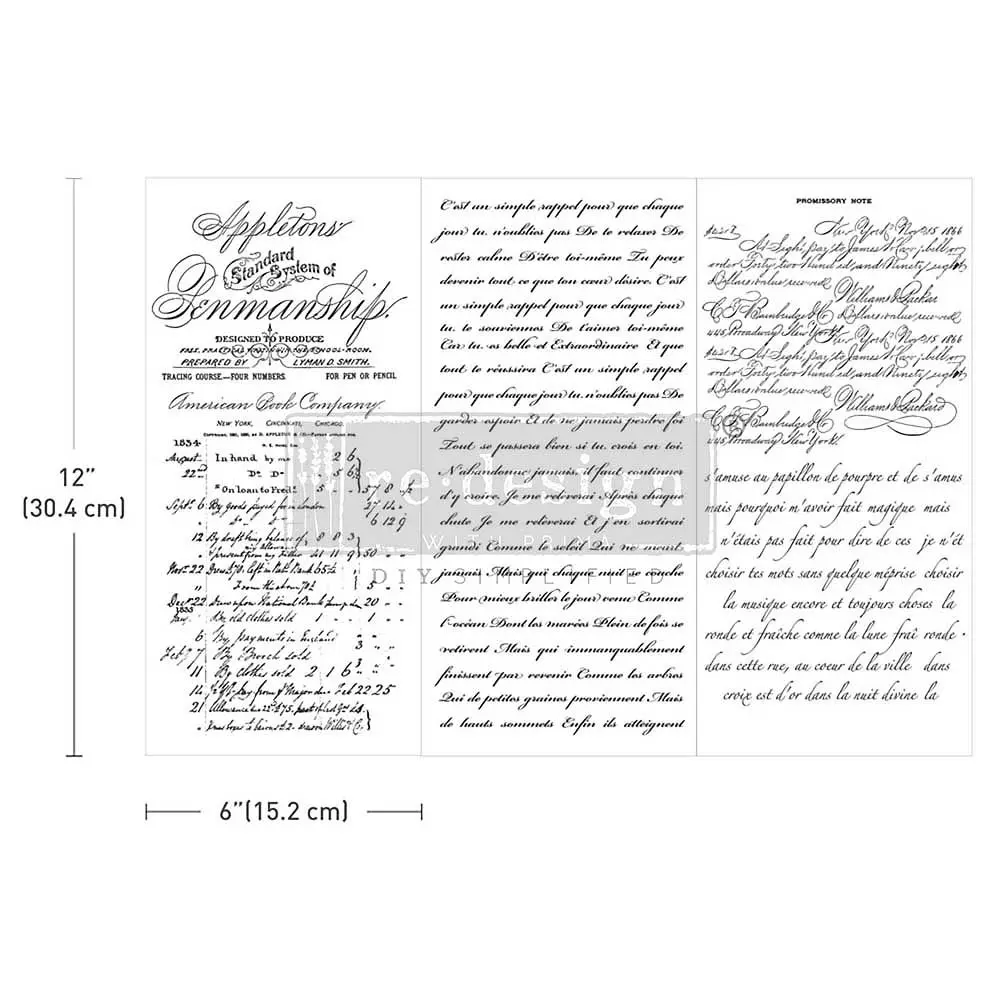 12"
(30.4 cm)
6"(15.2 cm)
Appletons'
Standard
System of
Penmanship.
DESIGNED TO PRODUCE
PREPARED BY LYMAN D. SMITH.
TRACING COURSE—FOUR NUMBERS. FOR PEN OR PENCIL
American Book Company.
NEW YORK, CINCINNATI, CHICAGO.
1834
August In hand by me 2 6
22nd Do Do 5 6
"On loan to Fredk 5
Sept. 6 By goods payed for in London
6 12 9
12 By draft being balance of 8 8 3
my allowance
" present from my Father 41 11 9
Novr 22
Decr 22 Drawn upon National Bank
1835
Jany. By old clothes sold 1 1
6 By payments in England
Feby 7 By Brooch sold
11 By clothes sold 2 1 6
14
21 Allowance
C'est un simple rappel pour que chaque
jour tu. n'oublies pas De te relaxer De
rester calme D'être toi-même Tu peux
devenir tout ce que ton cœur désire. C'est
un simple rappel pour que chaque jour
tu. te souviennes De t'aimer toi-même
Car tu es belle et Extraordinaire Et que
tout te réussira C'est un simple rappel
pour que chaque jour tu. n'oublies pas De
garder espoir Et de ne jamais perdre foi
Tout se passera bien si tu crois en toi.
N'abandonne jamais, il faut continuer
d'y croire. Je me relèverai Après chaque
chute Je me relèverai Et j'en sortirai
grandi Comme le soleil Qui ne meurt
jamais Mais qui chaque nuit se couche
Pour mieux briller le jour venu Comme
l'océan Dont les marées Plein de fois se
retirent Mais qui immanquablement
finissent par revenir Comme les arbres
Qui de petites graines proviennent Mais
de hauts sommets Enfin ils atteignent
PROMISSORY NOTE
New York Nov 15 1866
At Sight, pay to James W. Carr, bill or
order Forty, two Hundred, and Ninety, eight
Dollars value received
Williams & Packard
C. F. Bainbridge & Co Dollars value received
445, Broadway New York New York Nov 15 1866
At Sight, pay to James W. Carr, bill or
order Forty, two Hundred, and Ninety, eight
Dollars value received
Williams & Packard
C. F. Bainbridge & Co
445, Broadway New York
s'amuse au papillon de pourpre et de s'amus
mais pourquoi m'avoir fait magique mais
n'étais pas fait pour dire de ces je n'ét
choisir tes mots sans quelque méprise choisir
la musique encore et toujours choses la
ronde et fraîche comme la lune fraî ronde
dans cette rue, au coeur de la ville dans
croix est d'or dans la nuit divine la
re·design
WITH PRIMA
DIY SIMPLIFIED